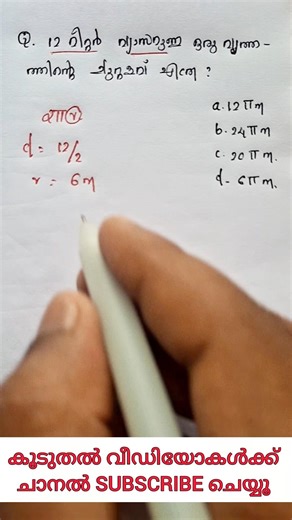 Q. 12 മീറ്റർ വ്യാസമുള്ള ഒരു വൃത്ത-
ത്തിന്റെ ചുറ്റളവ് എത്ര ?
a. 12 π m
b. 24 π m
c. 20 π m.
d. 6 π m.
d = 12/2
r = 6 m
കൂടുതൽ വീഡിയോകൾക്ക്
ചാനൽ SUBSCRIBE ചെയ്യൂ